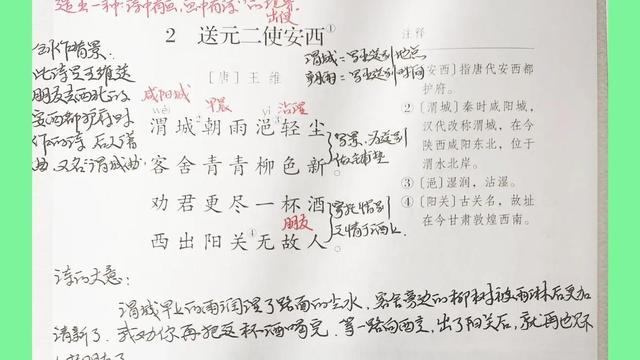 造出一种"诗中有画,画中有诗"的意境
出使
2 送元二使安西①
[唐] 王维
渭城=写出送别地点
朝雨=写出送别时间
创作背景:
此诗是王维送
朋友去西北的
安西都护府时
作的诗,后人谱
曲,又名"渭城曲"
咸阳城 早晨 沾湿
wèi yì
渭城朝雨浥轻尘
客舍青青柳色新。
写景,为送别
做铺垫
劝君更尽一杯酒
西出阳关④无故人。
朋友
友情于酒上
注释
安西]指唐代安西都
护府。
② [渭城]秦时咸阳城,
汉代改称渭城,在今
陕西咸阳东北,位于
渭水北岸。
③ [浥]湿润,沾湿。
④ [阳关]古关名,故址
在今甘肃敦煌西南。
诗的大意:
渭城早上的雨润湿了路面的尘土,客舍旁边的柳树被雨淋后更加
清新了。我劝你再把这杯酒喝完,等一路向西走,出了阳关后,就再也见不